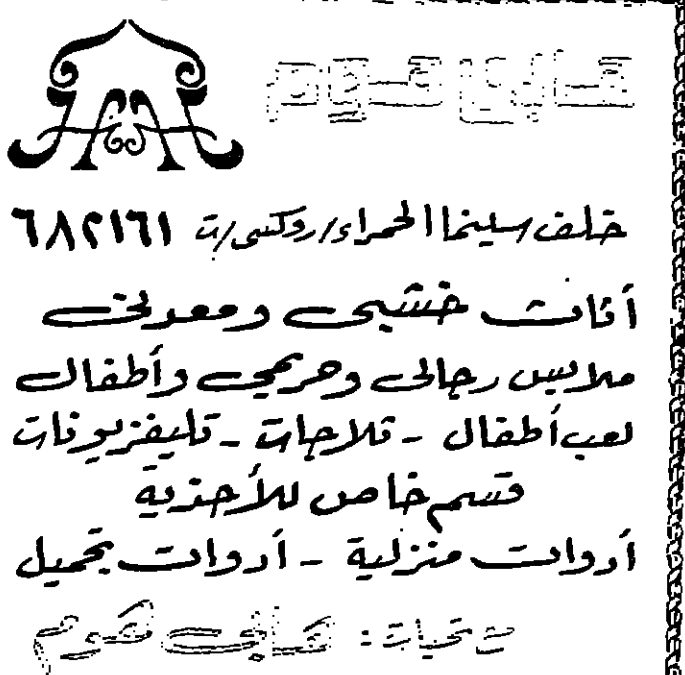 هابي هوم
خلف سينما الحمراء/روكسى/ت ٦٨٢١٦١
أثاث خشبى ومعدنى
ملابس رجالى وحريمى وأطفال
لعب أطفال - ثلاجات - تليفزيونات
قسم خاص للأحذية
أدوات منزلية - أدوات تجميل
مع تحيات : هابى هوم